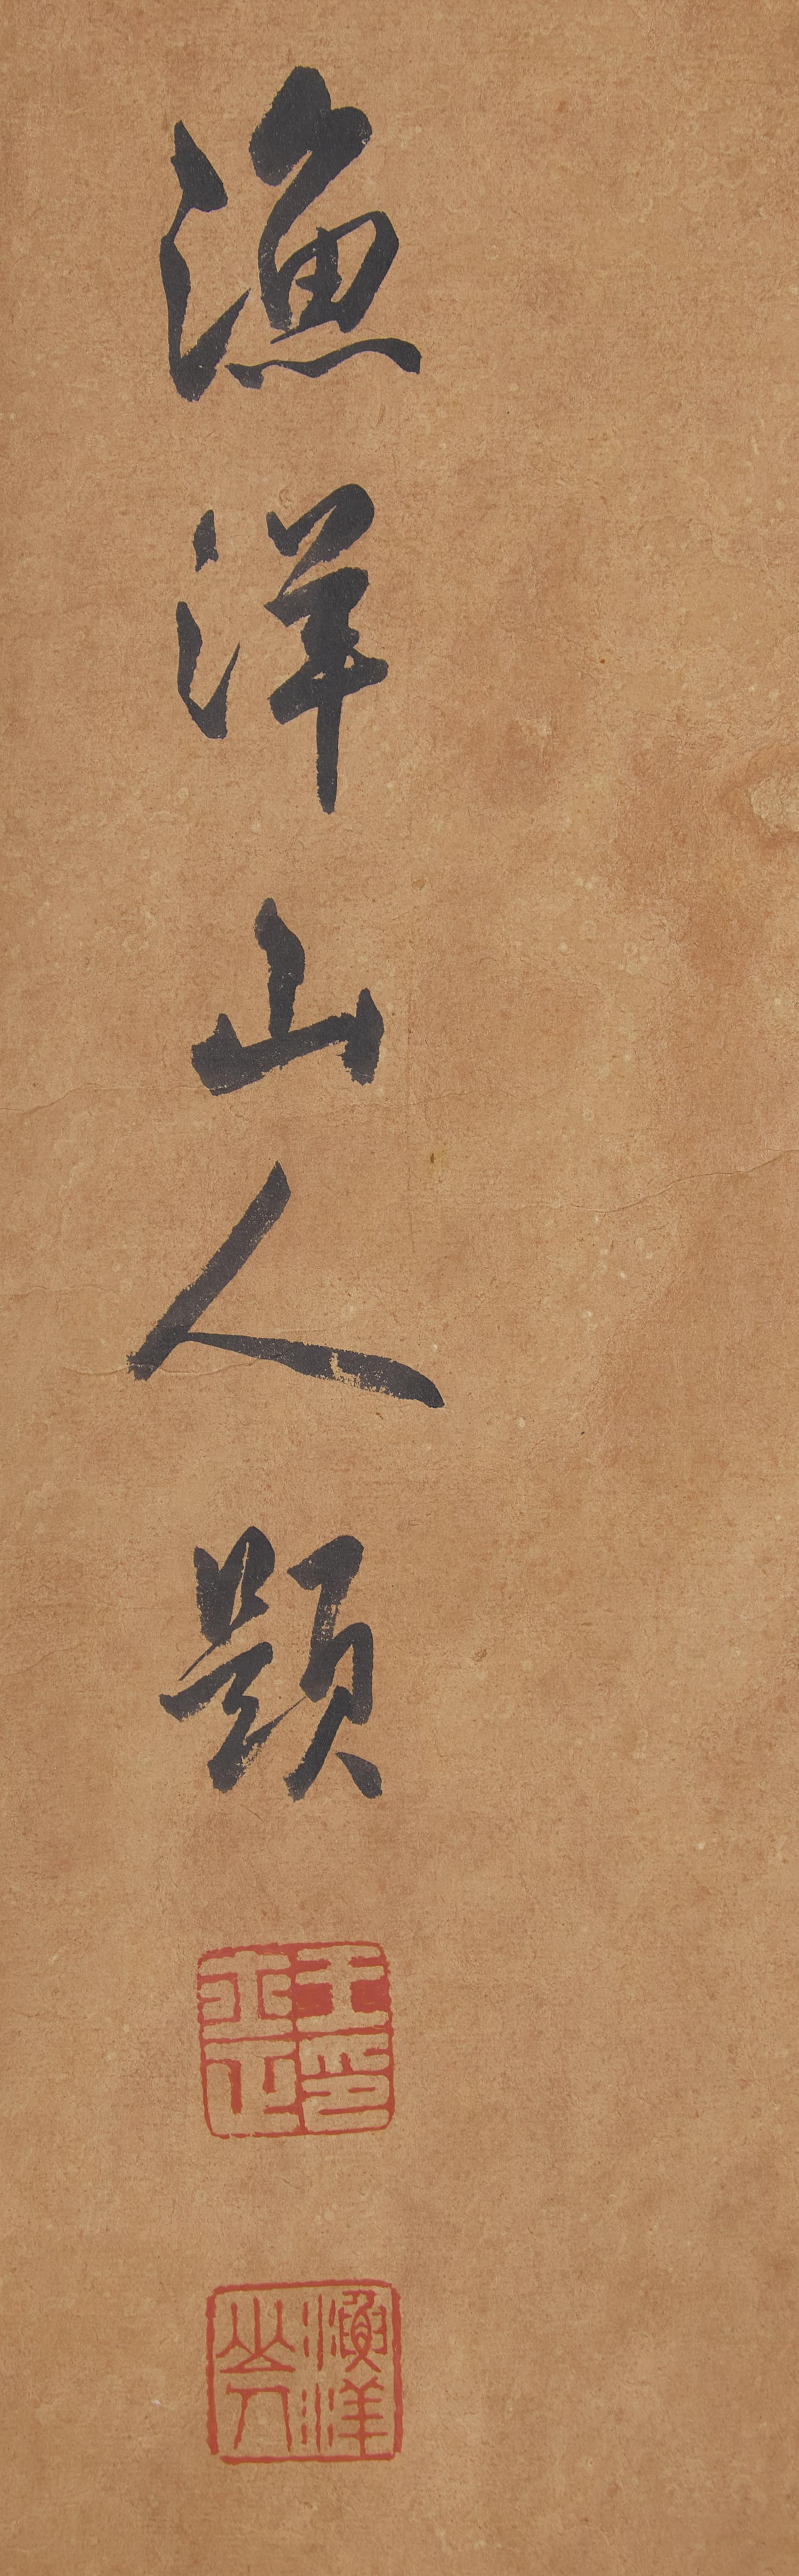 漁洋山人題
王印士正
漁洋山人